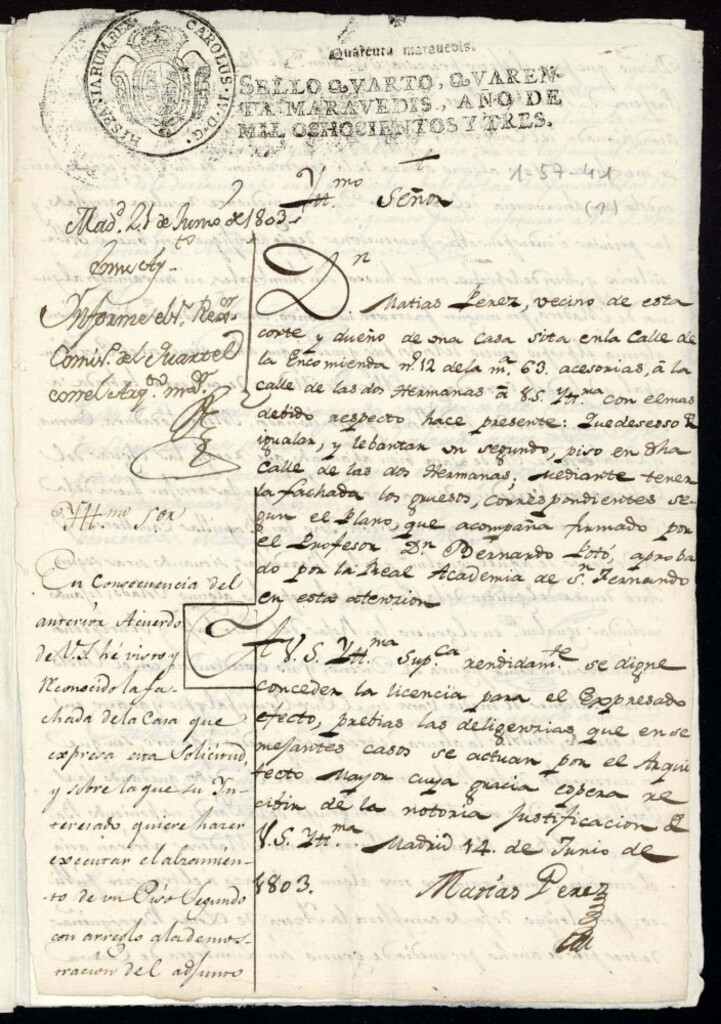 HISPANIARUM REX CAROLUS IV D G
Quarenta maravedis.
SELLO QVARTO, QVAREN-
TA MARAVEDIS, AÑO DE
MIL OCHOCIENTOS Y TRES.
1-57-41
(1)
Yll.mo Señor
Mad.d 21 de Junio de 1803
Informe el S.r Rex.or
Comis.o del Quartel
con el Arq.to m.or
Yll.mo S.or
En Consecuencia del
anterior Acuerdo
de V.S. hé visto y
reconocido la fa-
chada de la Casa que
expresa esta Solicitud,
y sobre la que su In-
teresado quiere hazer
executar el alzamien-
to de un Piso Segundo
con arreglo a la demos-
tracion del adjunto
D.n Matias Perez, vecino de esta
corte y dueño de una casa sita en la Calle de
la Encomienda n.º 12 de la m.a 63. acesorias, â la
calle de las dos Hermanas â V.S. Yll.ma con el mas
debido respecto hace presente: Que deseoso de
igualar, y lebantar un segundo, piso en dha
calle de las dos Hermanas; mediante tener
la fachada los gruesos, correspondientes se-
gun el Plano, que acompaña firmado por
el Profesor D.n Bernardo aproba
do por la Real Academia de S.n Fernando
en esta atencion
A V.S. Yll.ma Sup.ca rendidam.te se digne
conceder la licencia para el Expresado
efecto, prebias las deligencias que en se
mejantes casos se actuan por el Arqui
tecto Mayor cuya gracia espera re
cibir de la notoria Justificacion de
V.S. Yll.ma. Madrid 14. de Junio de
1803.
Matias Perez